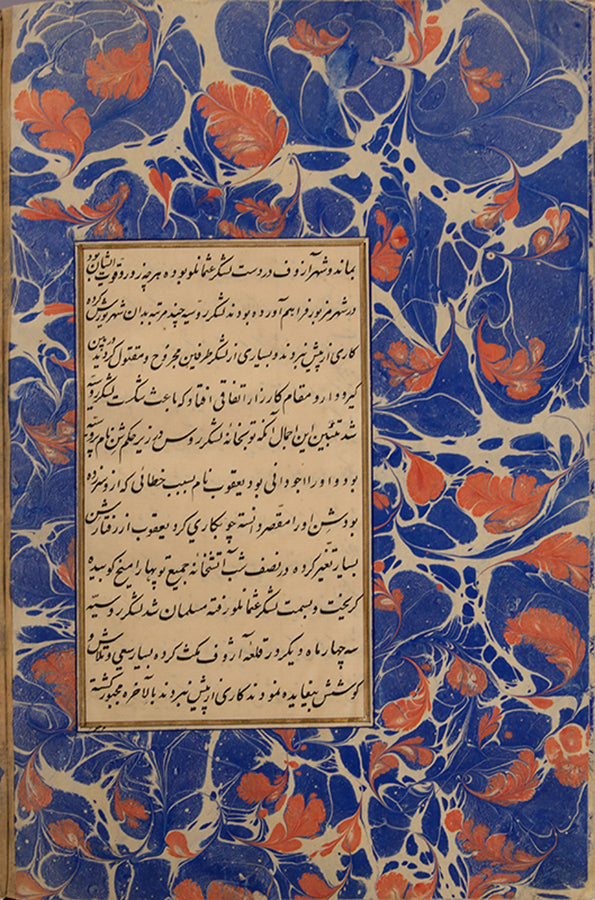 بماند و شهر آزوف در دست لشکر عثمانلو بوده هر چه زور و قوت ایشان بود
در شهر مزبور فراهم آورده بودند لشکر روسیه چند مرتبه بدان شهر یورش کرده
کاری از پیش نبردند و بسیاری از لشکر طرفین مجروح و مقتول کردیدند در این
کیرودار و مقام کارزار اتفاقی افتاد که باعث شکست لشکر روسیه
شد تبیین این اجمال آنکه توپخانهٔ لشکر روس در زیر حکم شن نام
بود و او را اجودانی بود یعقوب نام بسبب خطائی که از او سرزده
بود شن او را مقصر دانسته چوبکاری کرد یعقوب از رفتار شن
بسیار تغیر کرده در نصف شب آتشخانه جمیع توپها را میخ کوبیده
کریخت و بسمت لشکر عثمانلو رفته مسلمان شد لشکر روسیه
سه چهار ماه دیکر در قلعهٔ آزوف مکث کرده بسیار سعی و تلاش و
کوشش بیفایده نمودند کاری از پیش نبردند بالآخره مجبور کشته